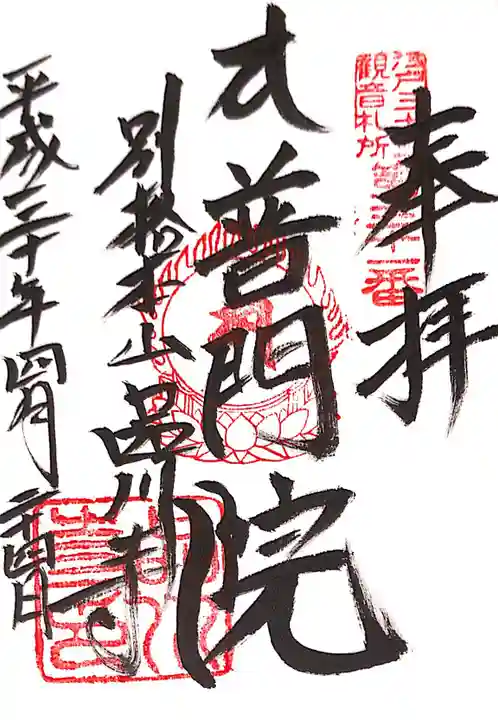 奉拝
江戸三十三
観音札所
第三十一番
普門院
別格本山 品川寺
平成三十年四月 日